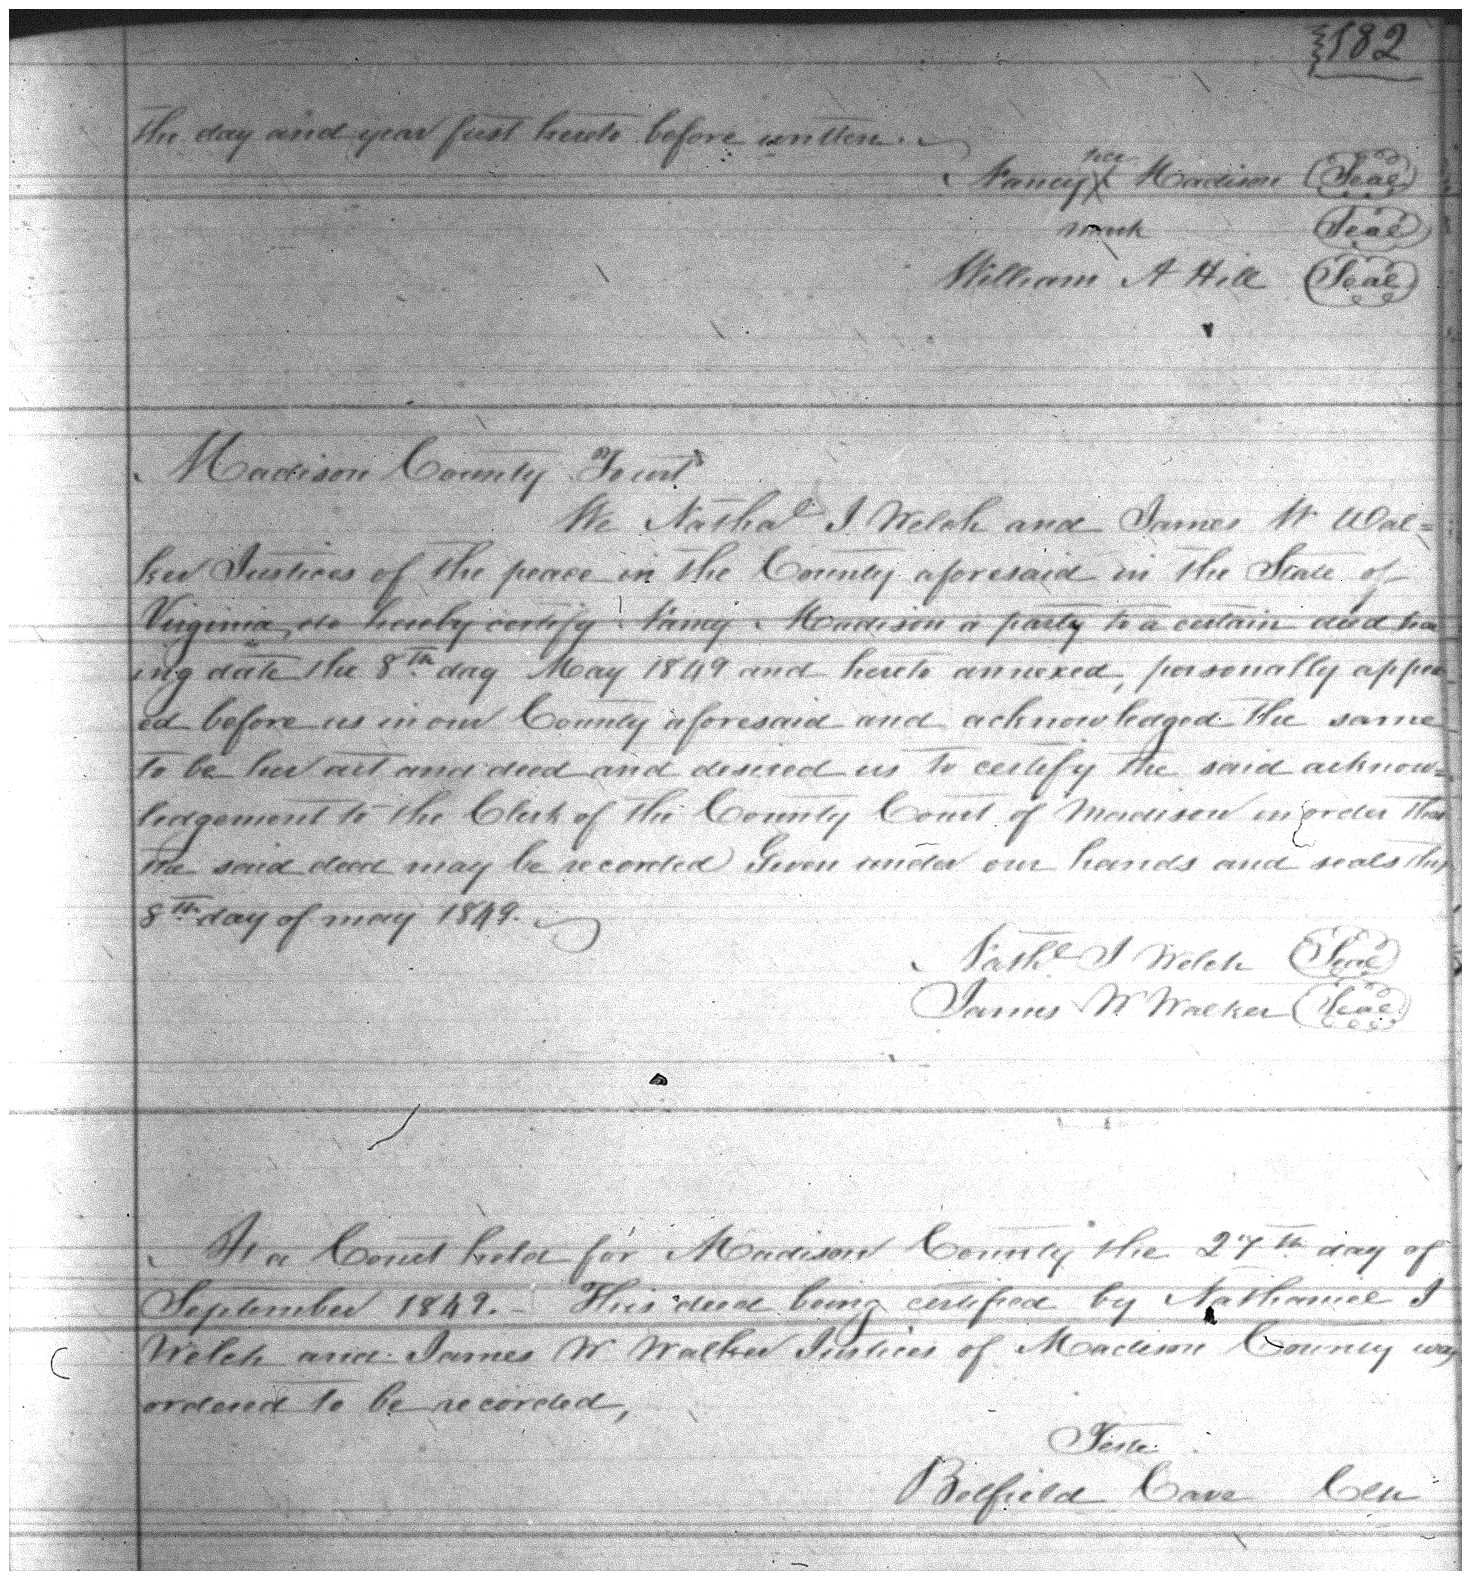 182
the day and year first hereto before written.
her
Nancy X Madison Seal
mark Seal
William A Hill Seal
Madison County Towit
We Nathal I Welch and James W Wal=
ker Justices of the peace in the County aforesaid in the State of
Virginia, do hereby certify Nancy Madison a party to a certain deed bea
ing date the 8th day May 1849 and hereto annexed, personally appea
ed before us in our County aforesaid and acknowledged the same
to be her act and deed and desired us to certify the said acknow=
ledgement to the Clerk of the County Court of Madison in order that
the said deed may be recorded Given under our hands and seals this
8th day of may 1849.
Nathl I Welch Seal
James W Walker Seal
At a Court held for Madison County the 27th day of
September 1849. - This deed being certified by Nathaniel I
Welch and James W Walker Justices of Madison County was
ordered to be recorded,
Teste.
Belfield Cave Clk